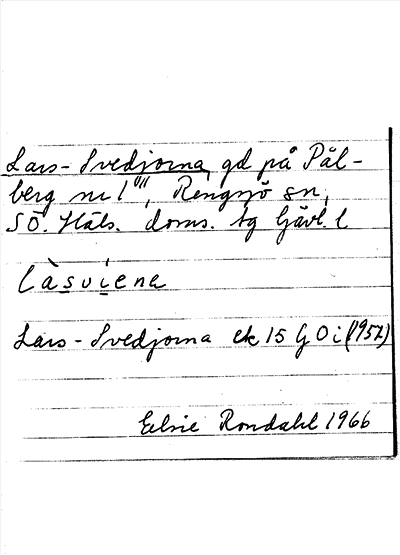 Lars-Svedjorna, gd på Pål-
berg nr 1^III, Rengsjö sn,
SÖ. Häls. doms. tg Gävl. l
làsvi̲ena
Lars-Svedjorna ek 15 G O i (1957)
Elsie Rondahl 1966